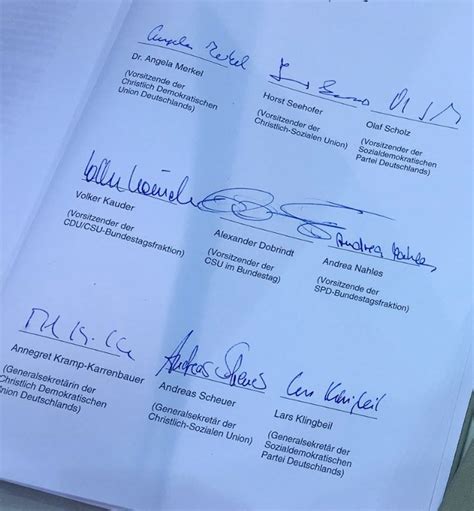 Angela Merkel
Dr. Angela Merkel
(Vorsitzende der
Christlich Demokratischen
Union Deutschlands)
Horst Seehofer
(Vorsitzender der
Christlich-Sozialen Union)
Olaf Scholz
(Vorsitzender der
Sozialdemokratischen
Partei Deutschlands)
Volker Kauder
Volker Kauder
(Vorsitzender der
CDU/CSU-Bundestagsfraktion)
Alexander Dobrindt
(Vorsitzender der
CSU im Bundestag)
Andrea Nahles
Andrea Nahles
(Vorsitzende der
SPD-Bundestagsfraktion)
Annegret Kramp-Karrenbauer
(Generalsekretärin der
Christlich Demokratischen
Union Deutschlands)
Andreas Scheuer
Andreas Scheuer
(Generalsekretär der
Christlich-Sozialen Union)
Lars Klingbeil
Lars Klingbeil
(Generalsekretär der
Sozialdemokratischen
Partei Deutschlands)